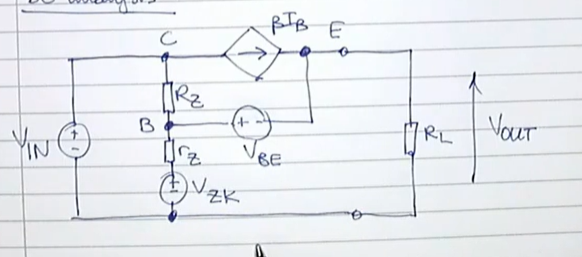 DC analysis
βI_B
C
E
R_Z
B
V_IN
+
-
+ -
V_BE
r_Z
+
-
V_ZK
R_L
V_OUT